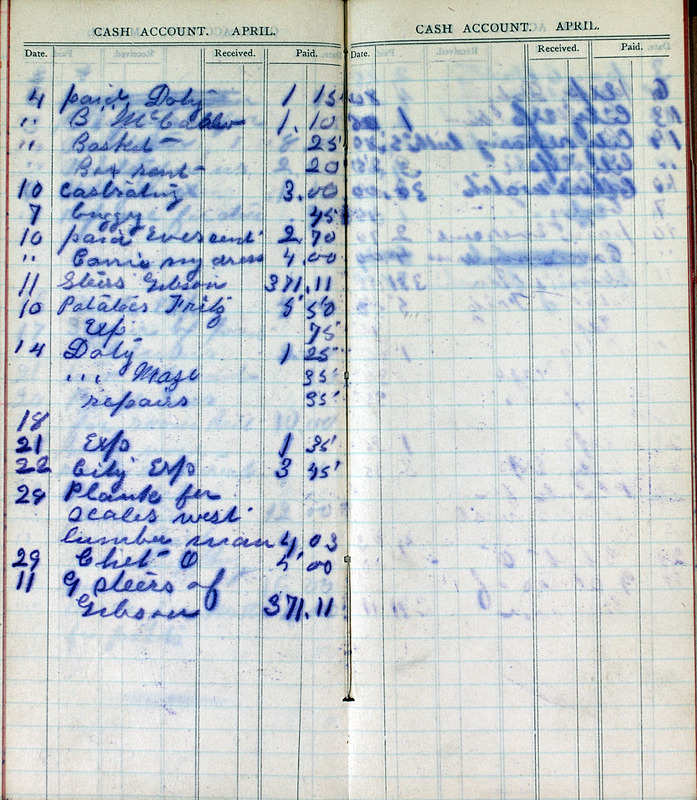 CASH ACCOUNT. APRIL.
Date. Received. Paid.
4 paid Doly 1 15
" B. McCadden 1.10
" Basket 25
" Box rent 20
10 Castrating 3.00
7 buggy 45
10 paid Evers cent 2.70
" Carrie my dress 4.00
11 Steers Gibson 371.11
10 Potatoes Fritz 5 50
Exp 75
14 Doly 1 25
" Maze 35
repairs 35
18
21 Exp 1 35
22 City Exp 3 45
Plank for
scales west
lumber man 4 03
29 Chet O 5 00
11 9 steers of
Gibson 371.11
CASH ACCOUNT. APRIL.
Date. Received. Paid.